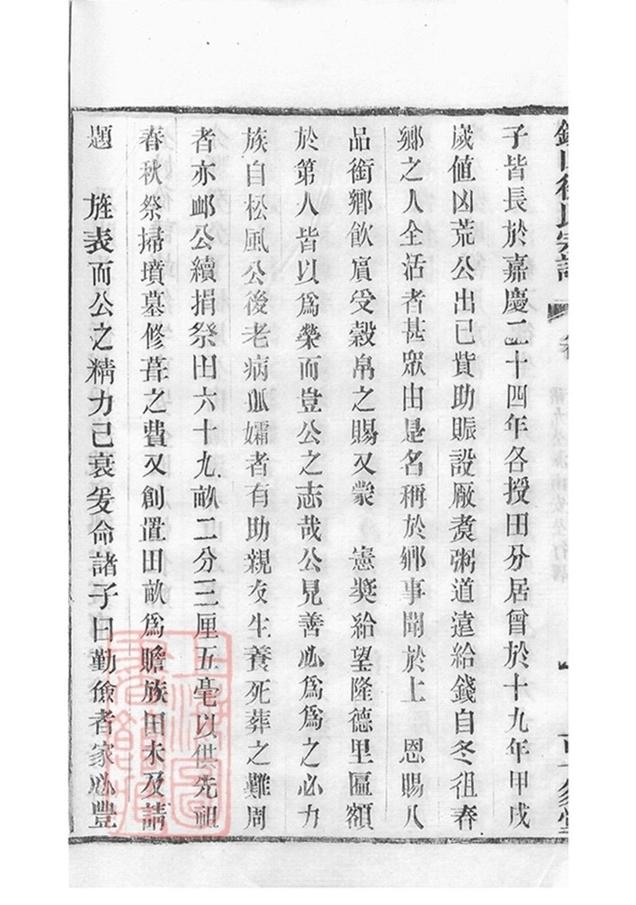 子皆長於嘉慶二十四年各授田分居曾於十九年甲戌
歲值凶荒公出己貲助賑設厰煑粥道遠給錢自冬徂春
鄉之人全活者甚眾由是名稱於鄉事聞於上　恩賜八
品銜鄉飲賔受穀帛之賜又蒙　憲奬給望隆德里匾額
於第人皆以爲榮而豈公之志哉公見善必爲爲之必力
族自松風公後老病孤孀者有助親友生養死葬之難周
者亦卹公續捐祭田六十九畝二分三厘五毫以供先祖
春秋祭掃墳墓修葺之費又創置田畝爲贍族田未及請
題　旌表而公之精力已衰爰命諸子曰勤儉者家必豐